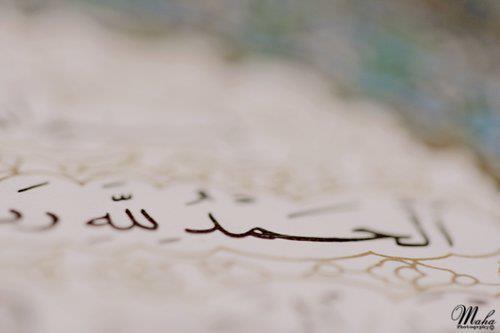 ٱلْحَمْدُ لِلَّهِ رَ
Maha
Photography©